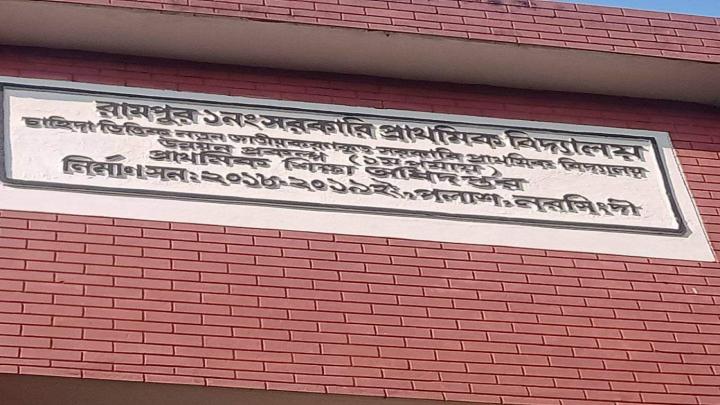 রামপুর ১নং সরকারি প্রাথমিক বিদ্যালয়
চাহিদা ভিত্তিক নতুন জাতীয়করণকৃত সরকারি প্রাথমিক বিদ্যালয়
উন্নয়ন প্রকল্প (১ম পর্যায়)
প্রাথমিক শিক্ষা অধিদপ্তর
নির্মাণসন: ২০১৮-২০১৯ইং, পলাশ, নরসিংদী